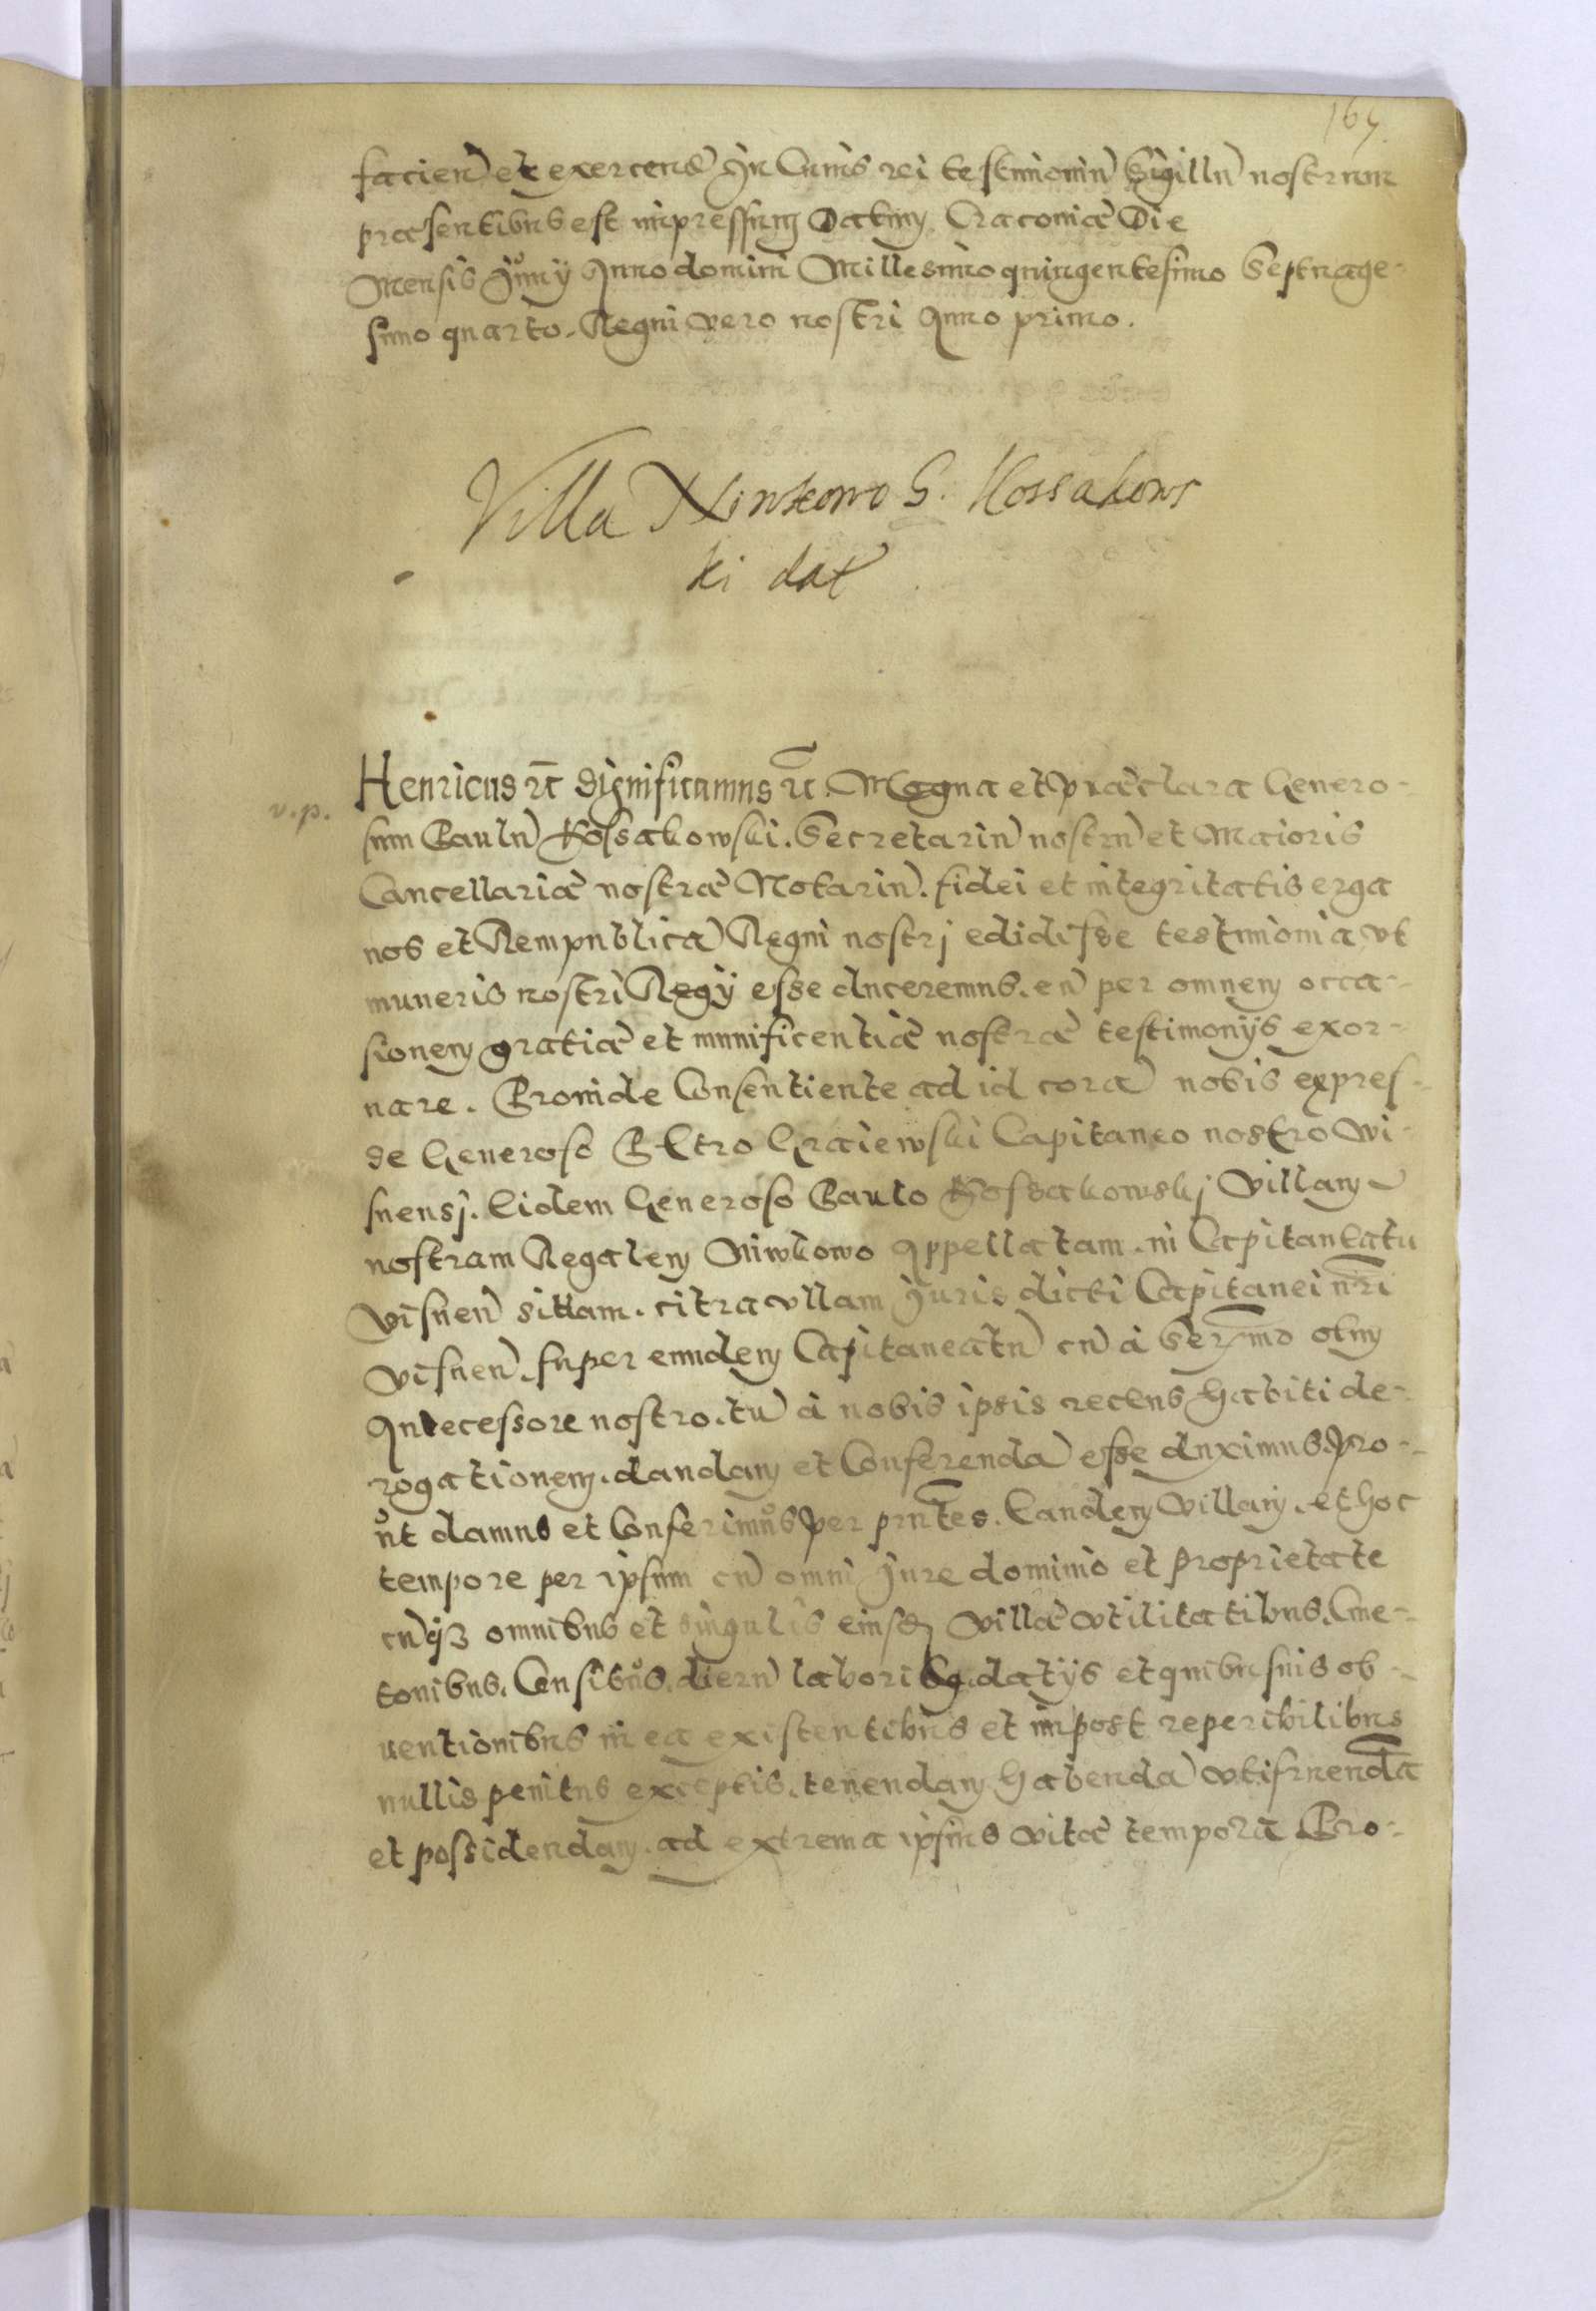 167.
facien̄ et exercend̄ In Cuius rei testimoniū Sigillū nostrum
præsentibus est impressum Datum Cracouiæ Die
Mensis Junij Anno domini Millesimo quingentesimo Septuage-
simo quarto. Regni vero nostri Anno primo.
Villa Niwkowo G. Kossakows
ki dat
v. p.
Henricus etc̄ Significamus etc̄. Magna et præclara Genero-
sum Paulū Kossakowski. Secretariū nostrū et Maioris
Cancellariæ nostræ Notariū. fidei et integritatis erga
nos et Rempublicā Regni nostrj edidisse testimonia, vt
muneris nostri Regij esse duceremus. eū per omnem occa-
sionem gratiæ et munificentiæ nostræ testimonijs exor-
nare. Proinde Consentiente ad id corā nobis expres-
se Generoso Petro Graiewski Capitaneo nostro Wi-
snensj. Eidem Generoso Paulo Kossakowskj Villam
nostram Regalem Niwkowo Appellatam. in Capitaneatu
Visnen̄ sittam. citra vllam Juris dicti Capitanei nr̄i
Visnen̄. super eumdem Capitaneatū cū à Ser̄mo olim
Antecessore nostro. tū à nobis ipsis recens habiti de-
rogationem. dandam et Conferendā esse duximus. pro-
ut damus et Conferimus per prn̄tes. Eandem Villam. et hoc
tempore per ipsum cū omni Jure dominio et proprietate
cūqz omnibus et singulis eiusdem villæ vtilitatibus. Cme-
tonibus. Censibus. dierū laboribq. datijs et quibusuis ob-
uentionibus in ea existentibus et inpost reperibilibus
nullis penitus exceptis. tenendam habendā vtifruendā
et possidendam. ad extrema ipsius vitæ tempora Pro-